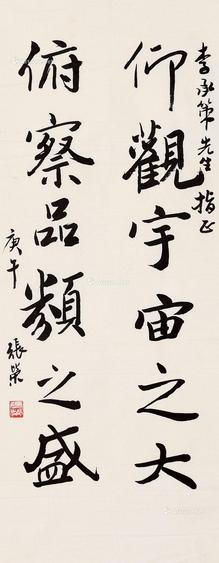 李承策先生指正
仰觀宇宙之大
俯察品類之盛
庚午 張榮